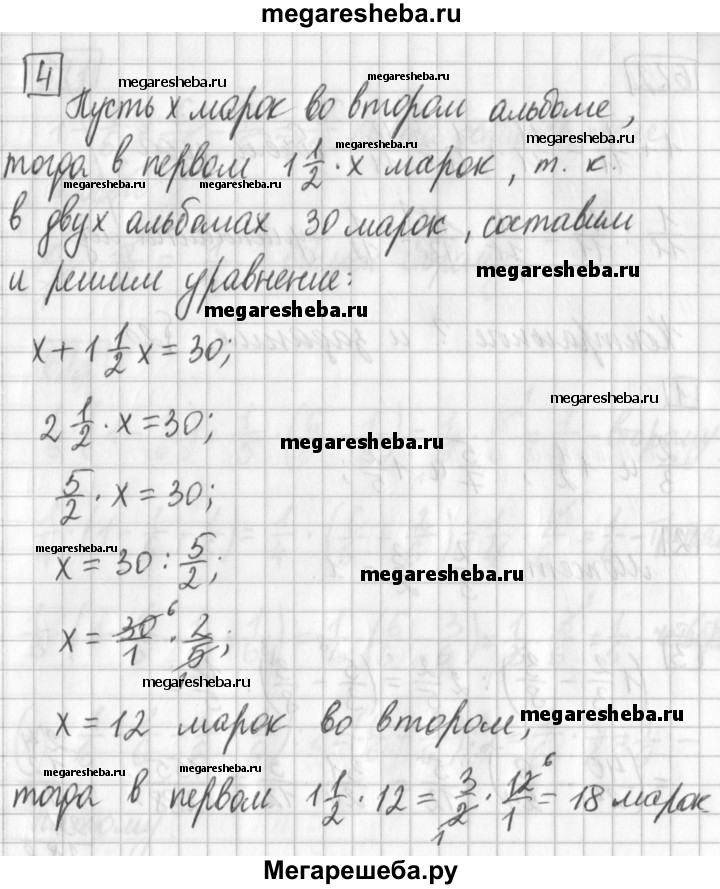 megaresheba.ru
4
megaresheba.ru megaresheba.ru
Пусть x марок во втором альбоме,
megaresheba.ru megaresheba.ru
тогда в первом 1 1/2 · x марок, т. к.
megaresheba.ru megaresheba.ru megaresheba.ru
в двух альбомах 30 марок, составим
и решим уравнение:
megaresheba.ru
megaresheba.ru
x + 1 1/2 x = 30;
megaresheba.ru
2 1/2 · x = 30;
megaresheba.ru
5/2 · x = 30;
megaresheba.ru
x = 30 : 5/2;
megaresheba.ru
x = 30/1 6 · 2/5;
megaresheba.ru
x = 12 марок во втором,
megaresheba.ru
megaresheba.ru megaresheba.ru
тогда в первом 1 1/2 · 12 = 3/2 1 · 12/1 6 = 18 марок
Мегарешеба.ру